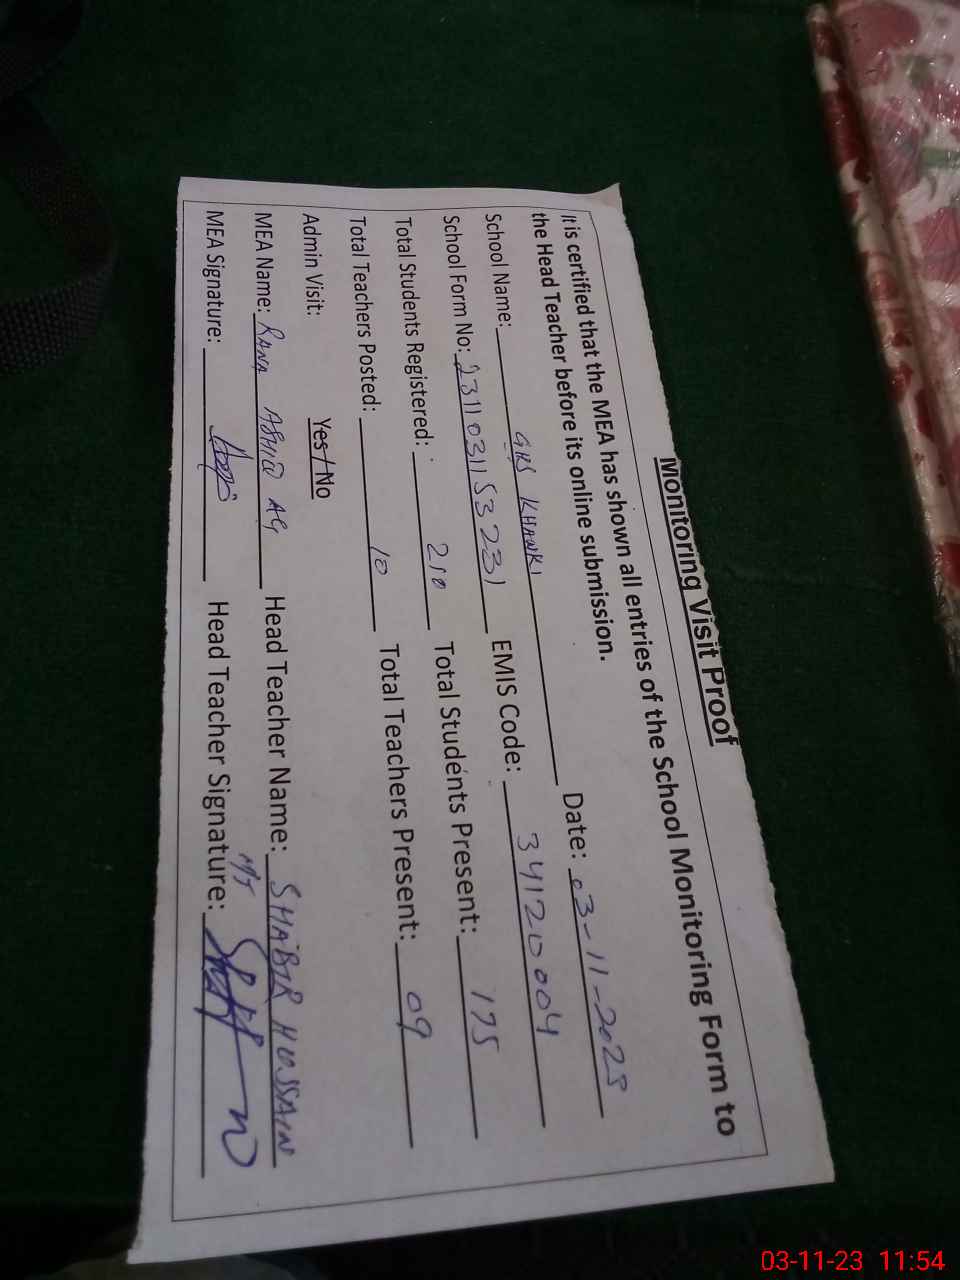 Monitoring Visit Proof
It is certified that the MEA has shown all entries of the School Monitoring Form to
the Head Teacher before its online submission.
School Name: GHS KHANKI Date: 03-11-2023
School Form No: 2311031153231 EMIS Code: 34120004
Total Students Registered: 210 Total Students Present: 175
Total Teachers Posted: 10 Total Teachers Present: 09
Admin Visit: Yes/No
MEA Name: RANA Head Teacher Name: SHABIR HUSSAIN
MEA Signature: Head Teacher Signature:
03-11-23 11:54